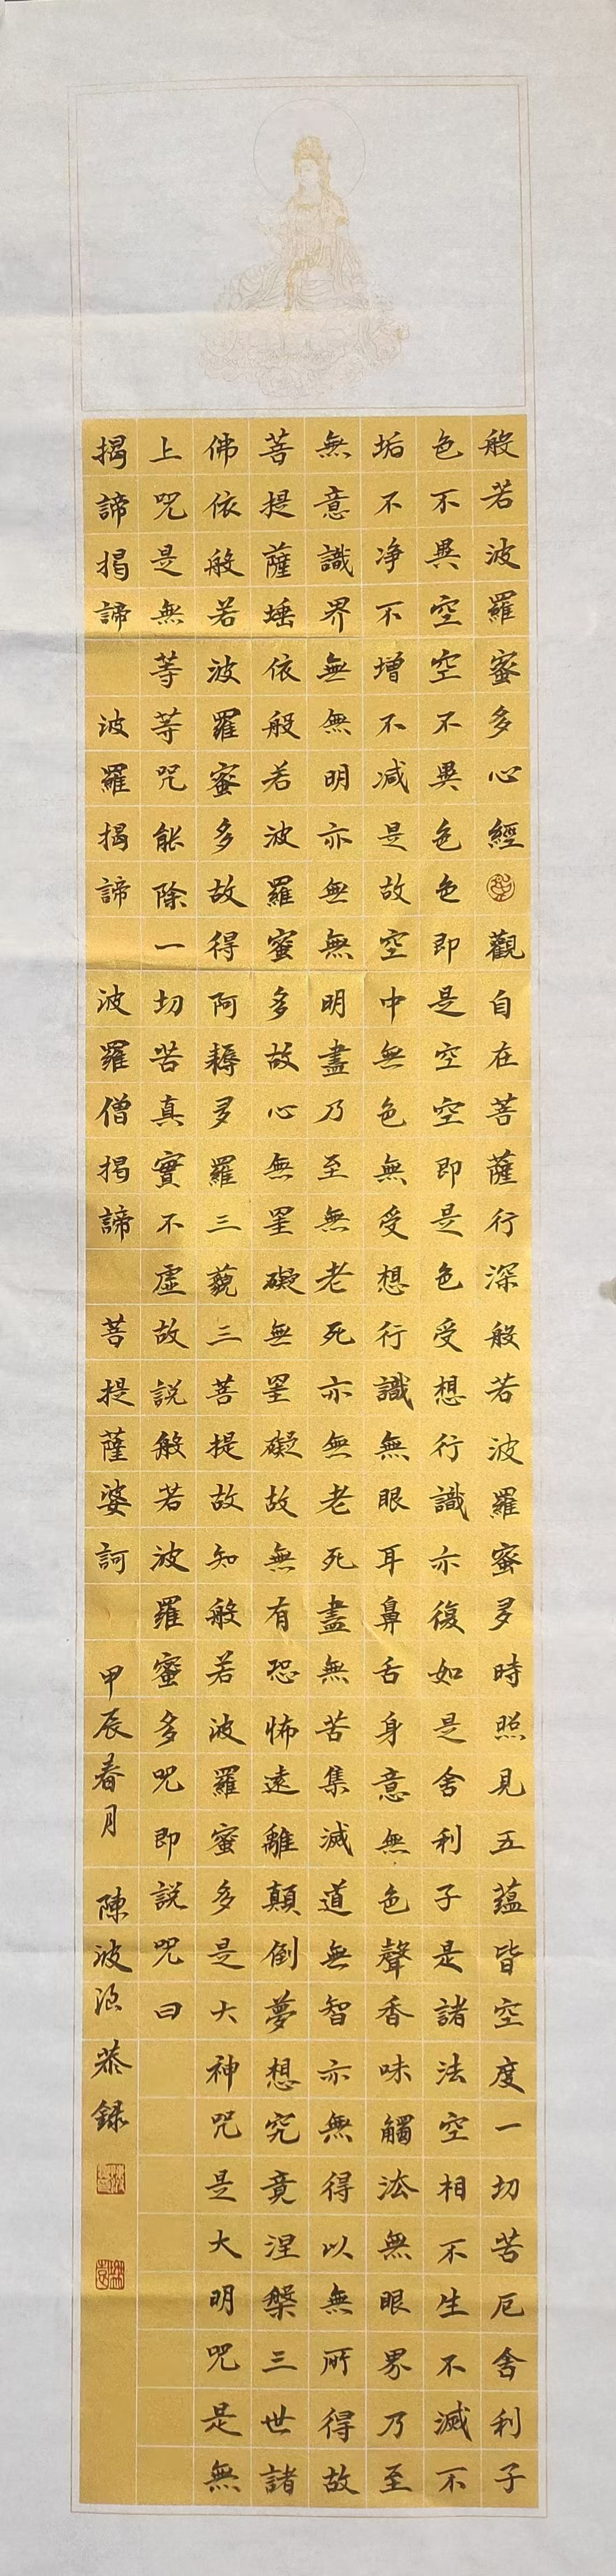 般若波羅蜜多心經觀自在菩薩行深般若波羅蜜多時照見五蘊皆空度一切苦厄舍利子
色不異空空不異色色即是空空即是色受想行識亦復如是舍利子是諸法空相不生不滅不
垢不净不增不减是故空中無色無受想行識無眼耳鼻舌身意無色聲香味觸法無眼界乃至
無意識界無無明亦無無明盡乃至無老死亦無老死盡無苦集滅道無智亦無得以無所得故
菩提薩埵依般若波羅蜜多故心無罣礙無罣礙故無有恐怖遠離顛倒夢想究竟涅槃三世諸
佛依般若波羅蜜多故得阿耨多羅三藐三菩提故知般若波羅蜜多是大神咒是大明咒是無
上咒是無等等咒能除一切苦真實不虛故説般若波羅蜜多咒即説咒曰
揭諦揭諦 波羅揭諦 波羅僧揭諦 菩提薩婆訶 甲辰春月 陳波浪恭録